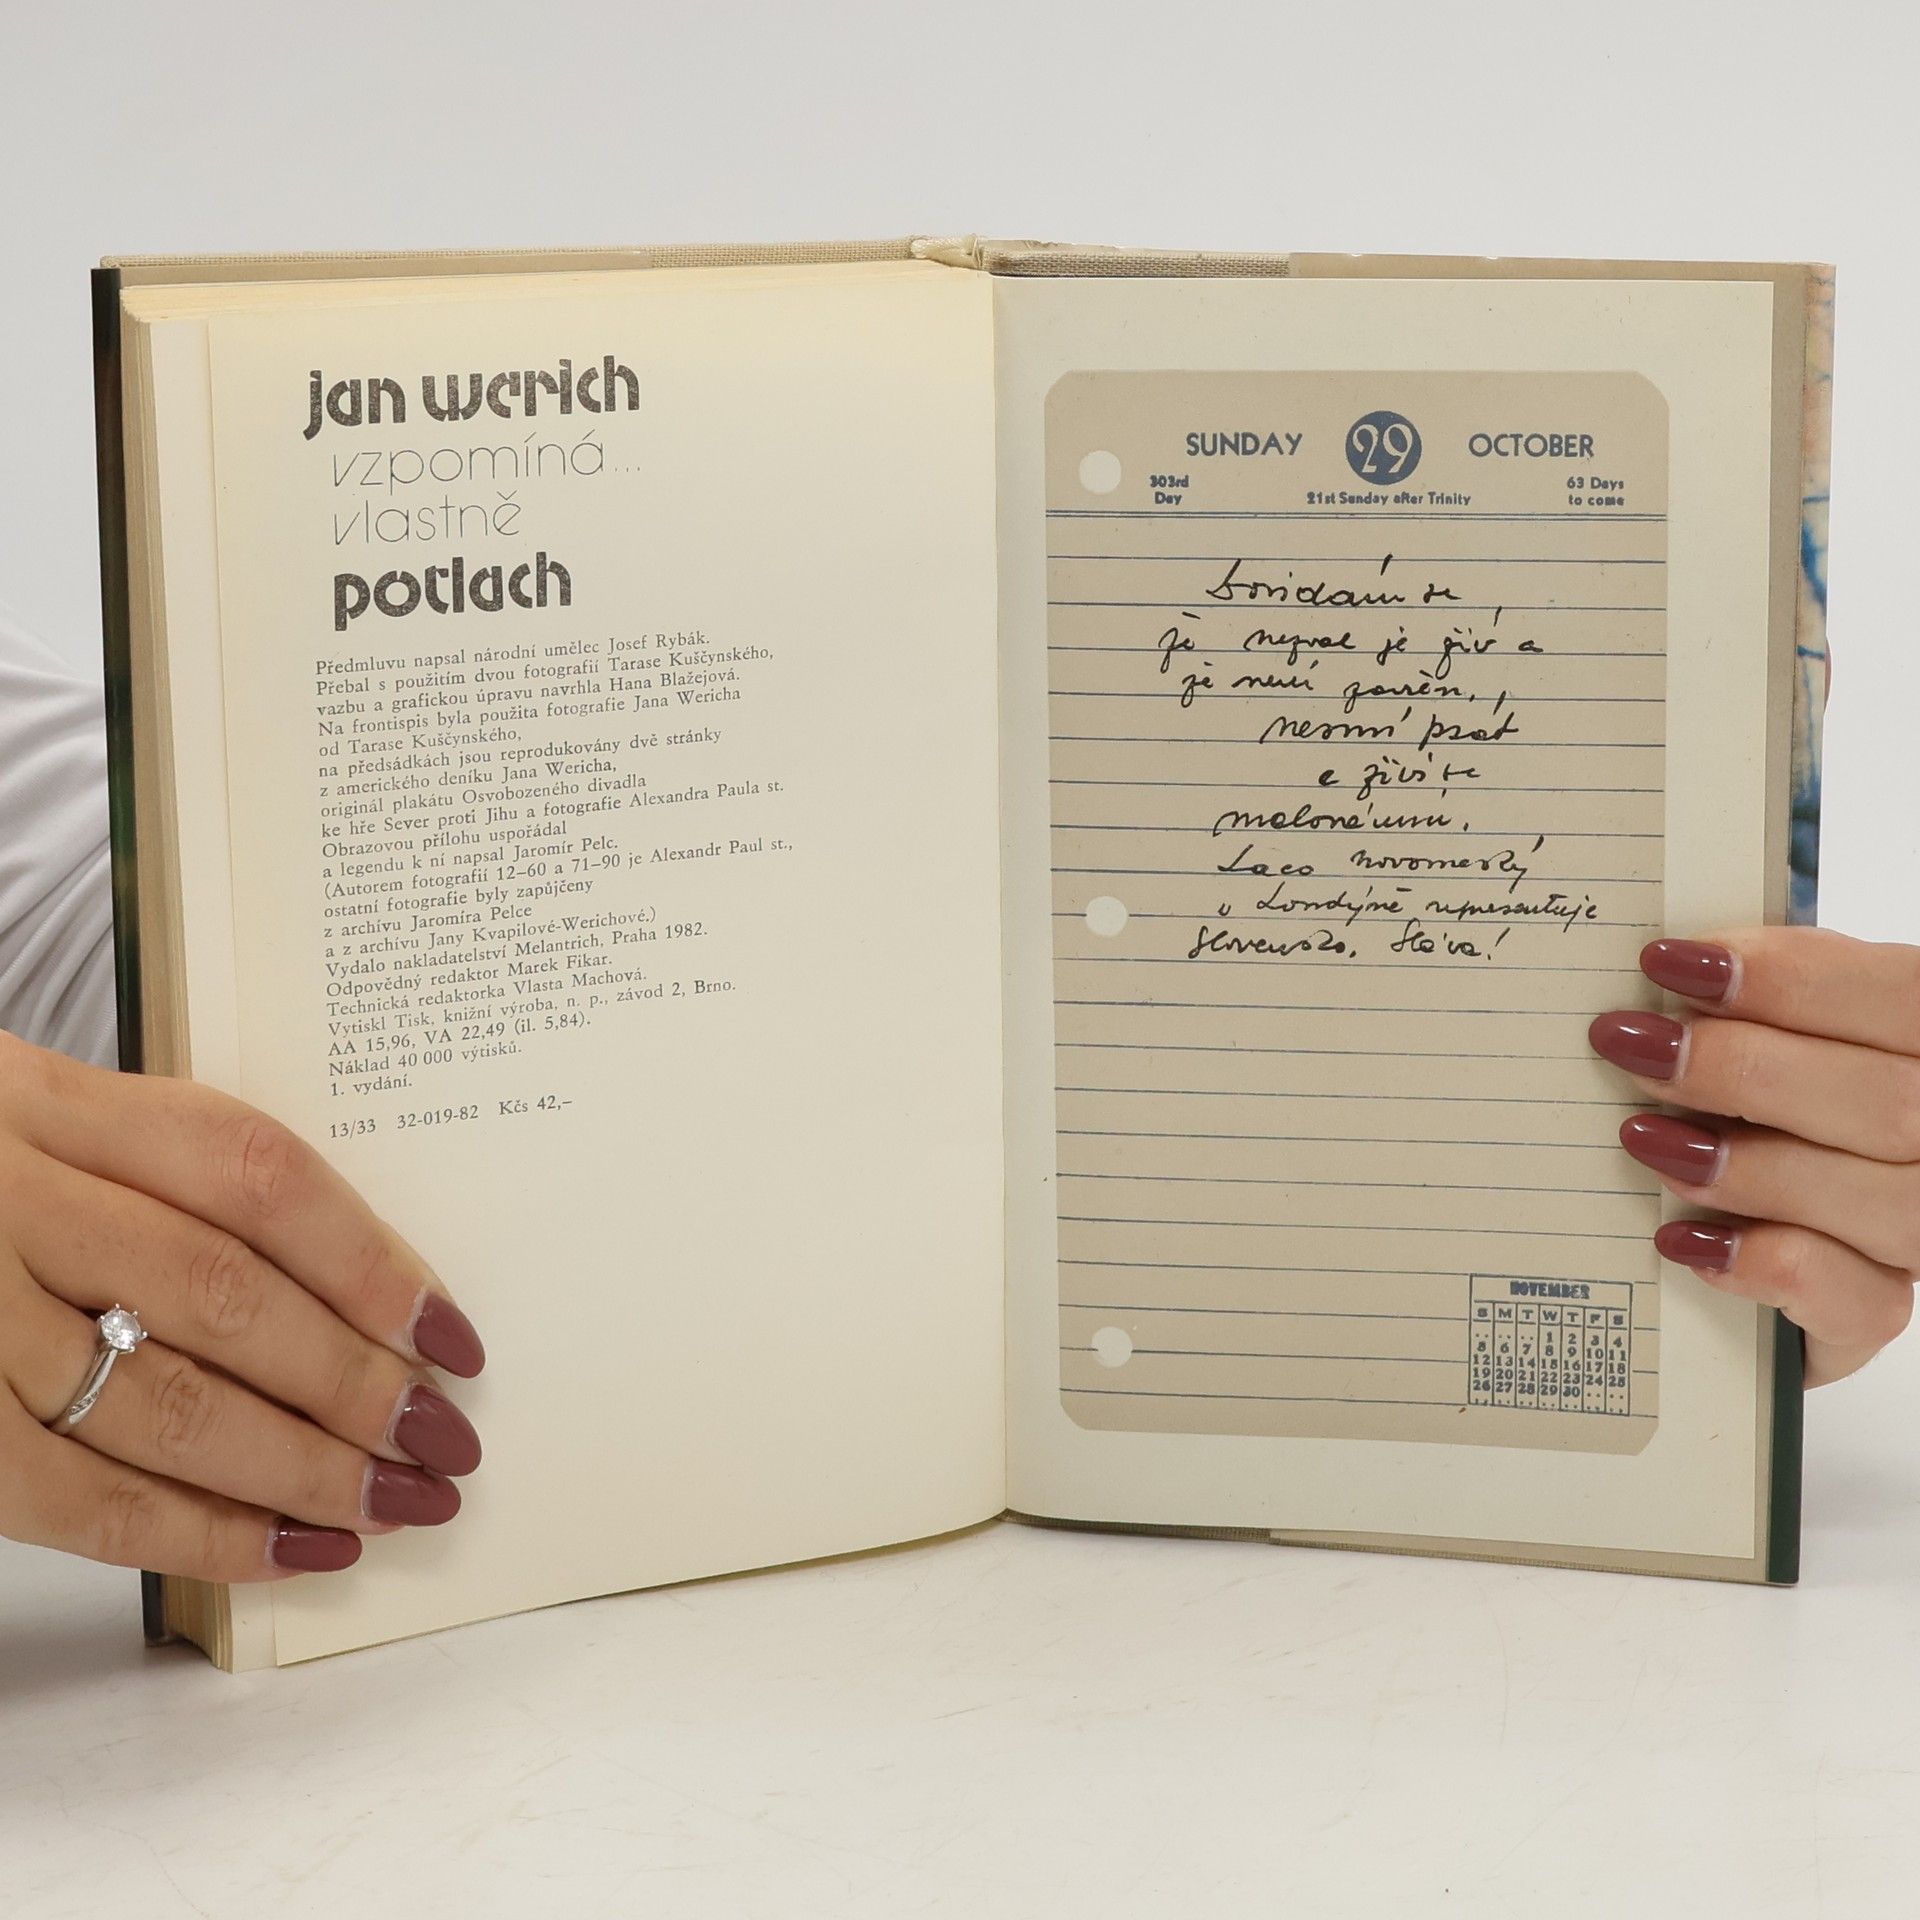 jan werich
vzpomíná...
vlastně
potlach
Předmluvu napsal národní umělec Josef Rybák.
Přebal s použitím dvou fotografií Tarase Kuščynského,
vazbu a grafickou úpravu navrhla Hana Blažejová.
Na frontispis byla použita fotografie Jana Wericha
od Tarase Kuščynského,
na předsádkách jsou reprodukovány dvě stránky
z amerického deníku Jana Wericha,
originál plakátu Osvobozeného divadla
ke hře Sever proti Jihu a fotografie Alexandra Paula st.
Obrazovou přílohu uspořádal
a legendu k ní napsal Jaromír Pelc.
(Autorem fotografií 12–60 a 71–90 je Alexandr Paul st.,
ostatní fotografie byly zapůjčeny
z archívu Jaromíra Pelce
a z archívu Jany Kvapilové-Werichové.)
Vydalo nakladatelství Melantrich, Praha 1982.
Odpovědný redaktor Marek Fikar.
Technická redaktorka Vlasta Machová.
Vytiskl Tisk, knižní výroba, n. p., závod 2, Brno.
AA 15,96, VA 22,49 (il. 5,84).
Náklad 40 000 výtisků.
1. vydání.
13/33 32-019-82 Kčs 42,–
SUNDAY 29 OCTOBER
303rd Day 21st Sunday after Trinity 63 Days to come
Dovídám se,
že Nezval je živ a
že není zavřen,
nesmí psát
a živí se
malováním.
Laco Novomeský
v Londýně representuje
Slovensko. Sláva!
NOVEMBER
S M T W T F S
.. .. .. 1 2 3 4
5 6 7 8 9 10 11
12 13 14 15 16 17 18
19 20 21 22 23 24 25
26 27 28 29 30 .. ..